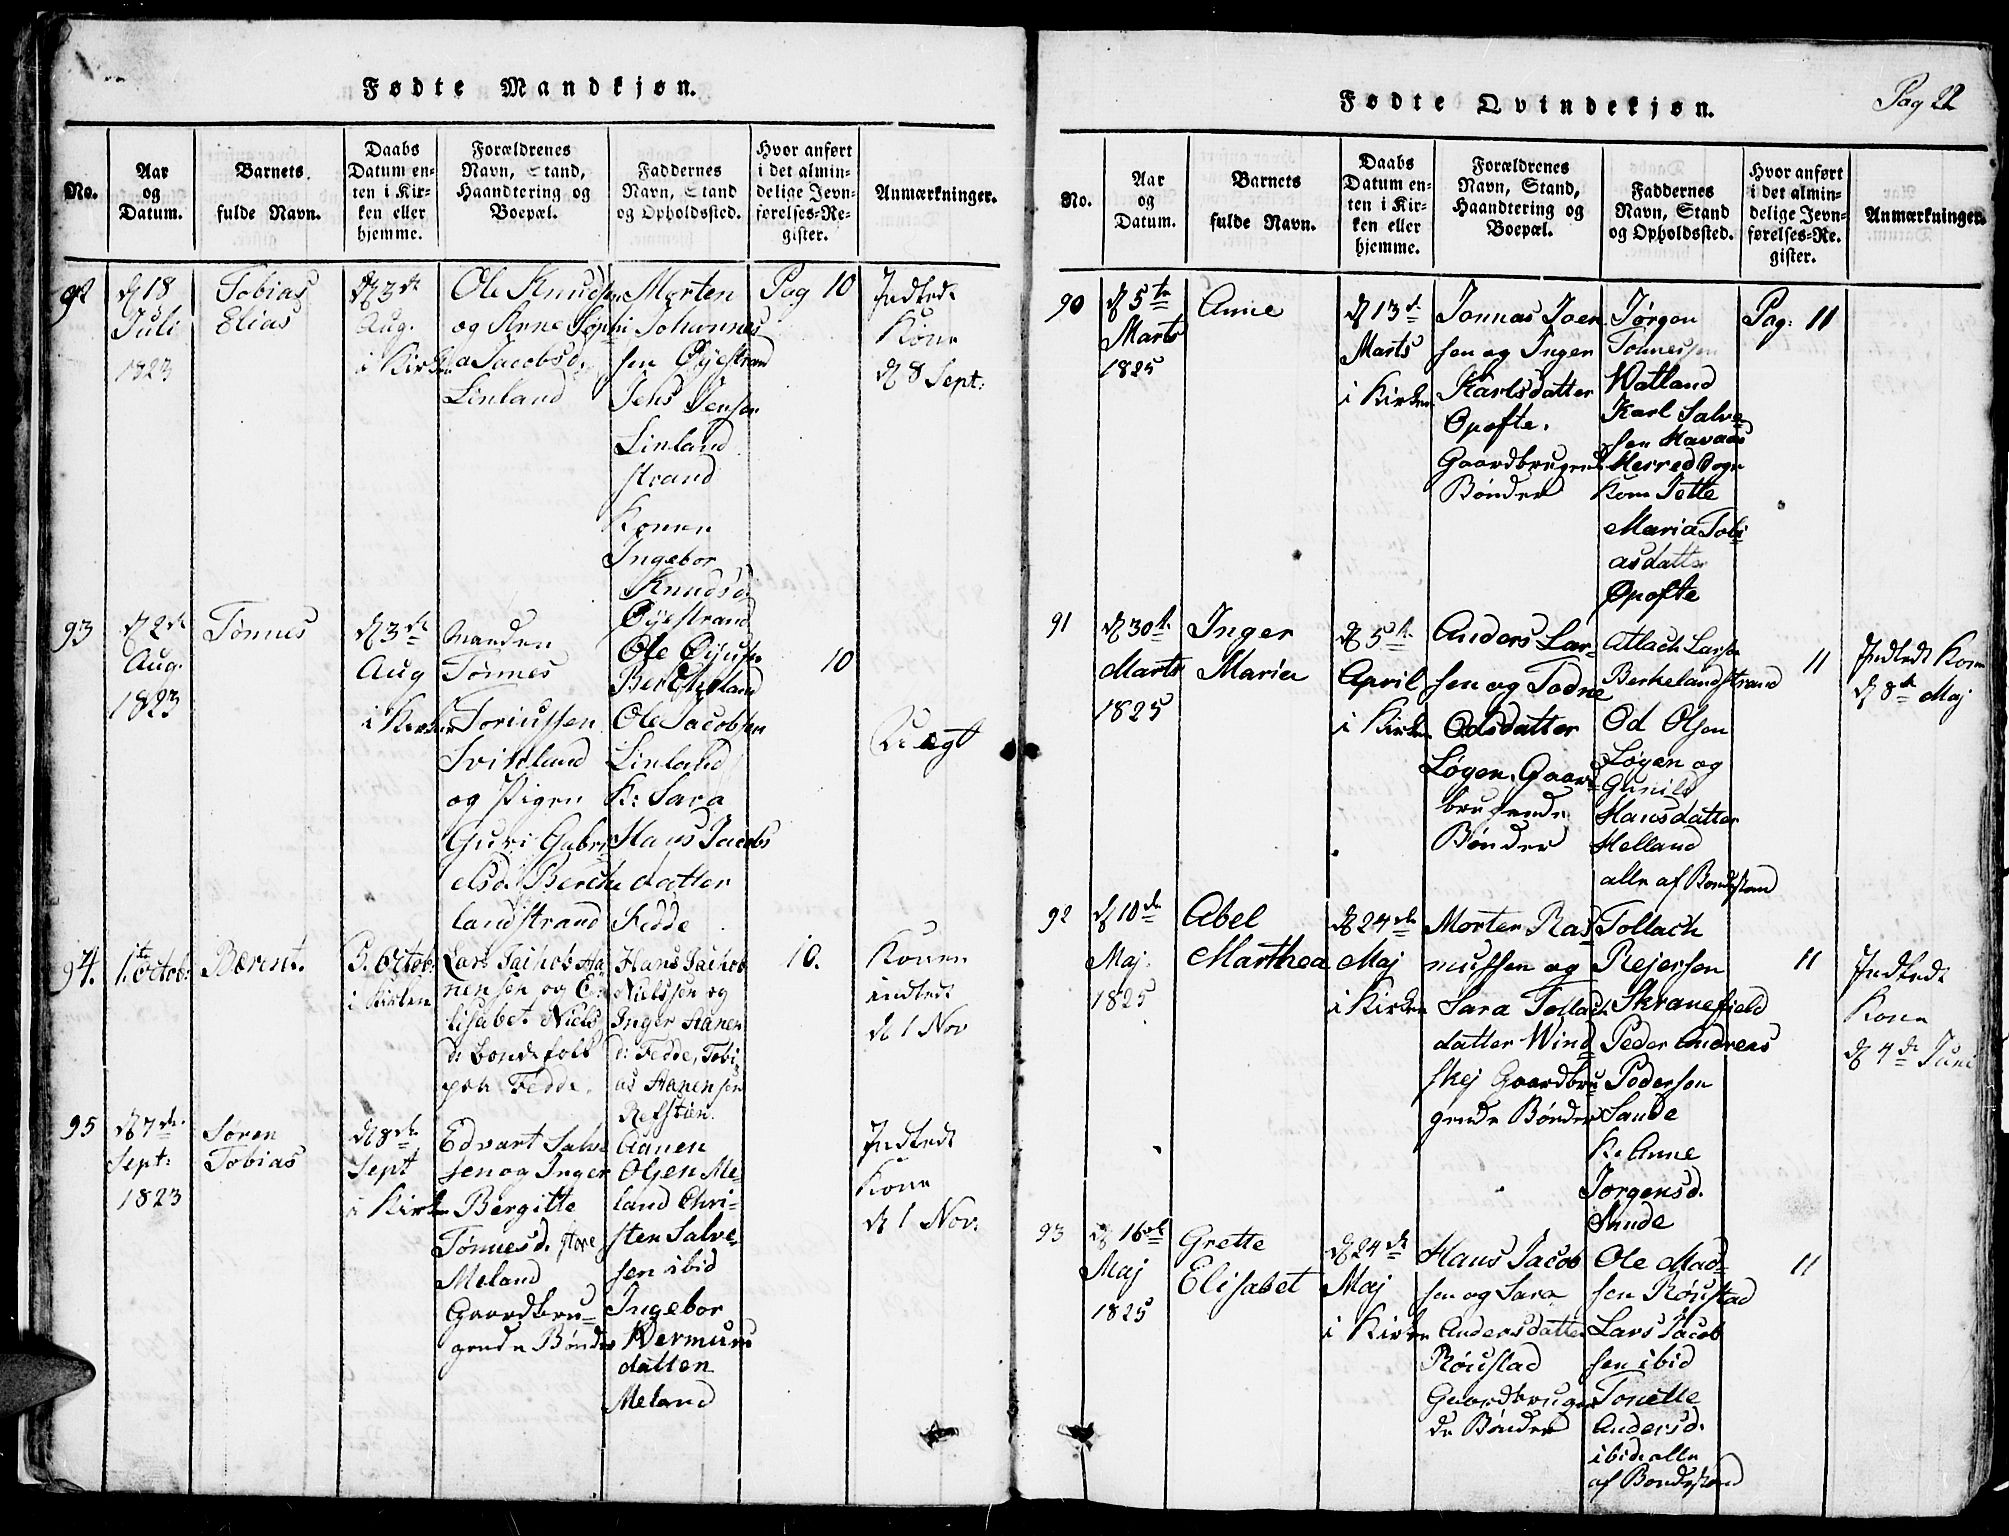 Fødte Mandkjøn.
No.
Aar
og
Datum.
Barnets
fulde Navn.
Daabs
Datum en-
ten i Kir-
ken eller
hjemme.
Forældrenes
Navn, Stand,
Haandtering og
Boepæl.
Faddernes
Navn, Stand
og Opholdssted.
Hvor anført
i det almin-
delige Jevn-
førelses-Re-
gister.
Anmærkninger.
92
d 18
Juli
1823
Tobias
Elias
d 3 de
Aug.
i Kirken
Ole Knudsen
og Anne Sophi
a Jacobsd.
Linland
Morten
Johannes
sen Øyestrand
Jens Jensen
Linland
strand
Konen
Ingebor
Knudsd.
Øyestrand
Pag 10
Indledt
Kone
d 8 Sept:
93
d 2 de
Aug.
1823
Tønnes
d 3 de
Aug
i Kirken
Manden
Tønnes
Svinland
og Pigen
Guri Gabri
elsd. Berche
landstrand
Ole
Ole Jacobsen
Linland
K: Sara
Hans Jacobs
datter
Fedde
10
Uægt
94.
1te Octob:
Bærent.
5. Octob:
i Kirken
Lars Jachob Ha
nensen og E
lisabet Niels
d: bondefolk
paa Fedde.
Hans Jachob
Nielssen og
Inger Hanen
d: Fedde, Tobi
as Hanensen
Refstien.
10.
Konen
indledt
d 1 Nov
95
d 7 de
Sept:
1823
Søren
Tobias
d 8 de
Sept
i Kirken
Edvart Salve
sen og Inger
Bergitte
Tønnesd. store
Meland
Gaardbru-
gende Bønder
Aanen
Olsen Me-
land Chri-
sten Salve-
sen ibid
Ingebor
datten
Meland
Indledt
Kone
d 1 Nov:
Fødte Qvindekjøn.
Pag 22
No.
Aar
og
Datum.
Barnets
fulde Navn.
Daabs
Datum en-
ten i Kir-
ken eller
hjemme.
Forældrenes
Navn, Stand,
Haandtering og
Boepæl.
Faddernes
Navn, Stand
og Opholdssted.
Hvor anført
i det almin-
delige Jevn-
førelses-Re-
gister.
Anmærkninger.
90
d 5 te
Marts
1825
Anne
d 13 d
Marts
i Kirken
Jonnas Joen
sen og Inger
Karlsdatter
Opofte.
Gaardbrugende
Bønder
Jørgen
Tønnessen
Watland
Karl Salve
sen Havaas
Herred Sogn
Kone Jette
Maria Tobi
asdatter
Opofte
Pag: 11
91
d 30 te
Marts
1825
Inger
Maria
d 5 te
April
i Kirken
Anders Lar-
sen og Todne
Odsdatter
Løgen. Gaard
brugende
Bønder
Atlach Larsen
Berkelandstrand
Od Olsen
Løgen og
Gunild
Hansdatter
Helland
alle af Bondestand
11
Indledt Kone
d 8 de Maj
92
d 10 de
Maj.
1825
Abel
Marthea
d 24 de
Maj
i Kirken
Morten Ras
mussen og
Sara Tollach
datter Wind
skej Gaardbru
gende Bønder
Tollach
Rejersen
Skranefield
Peder Andreas
Pedersen
Sande
K. Anne
Jørgensd.
Sande
11
Indledt
Kone
d 4 de Juni
93
d 16 de
Maj
1825
Grette
Elisabet
d 24 de
Maj
i Kirken
Hans Jacob
sen og Sara
Andersdatter
Røiestad
Gaardbrugen
de Bønder
Ole Mad-
sen Røiestad
Lars Jacob
sen ibid
Tonette
Andersd.
ibid. alle
af Bondestand
11